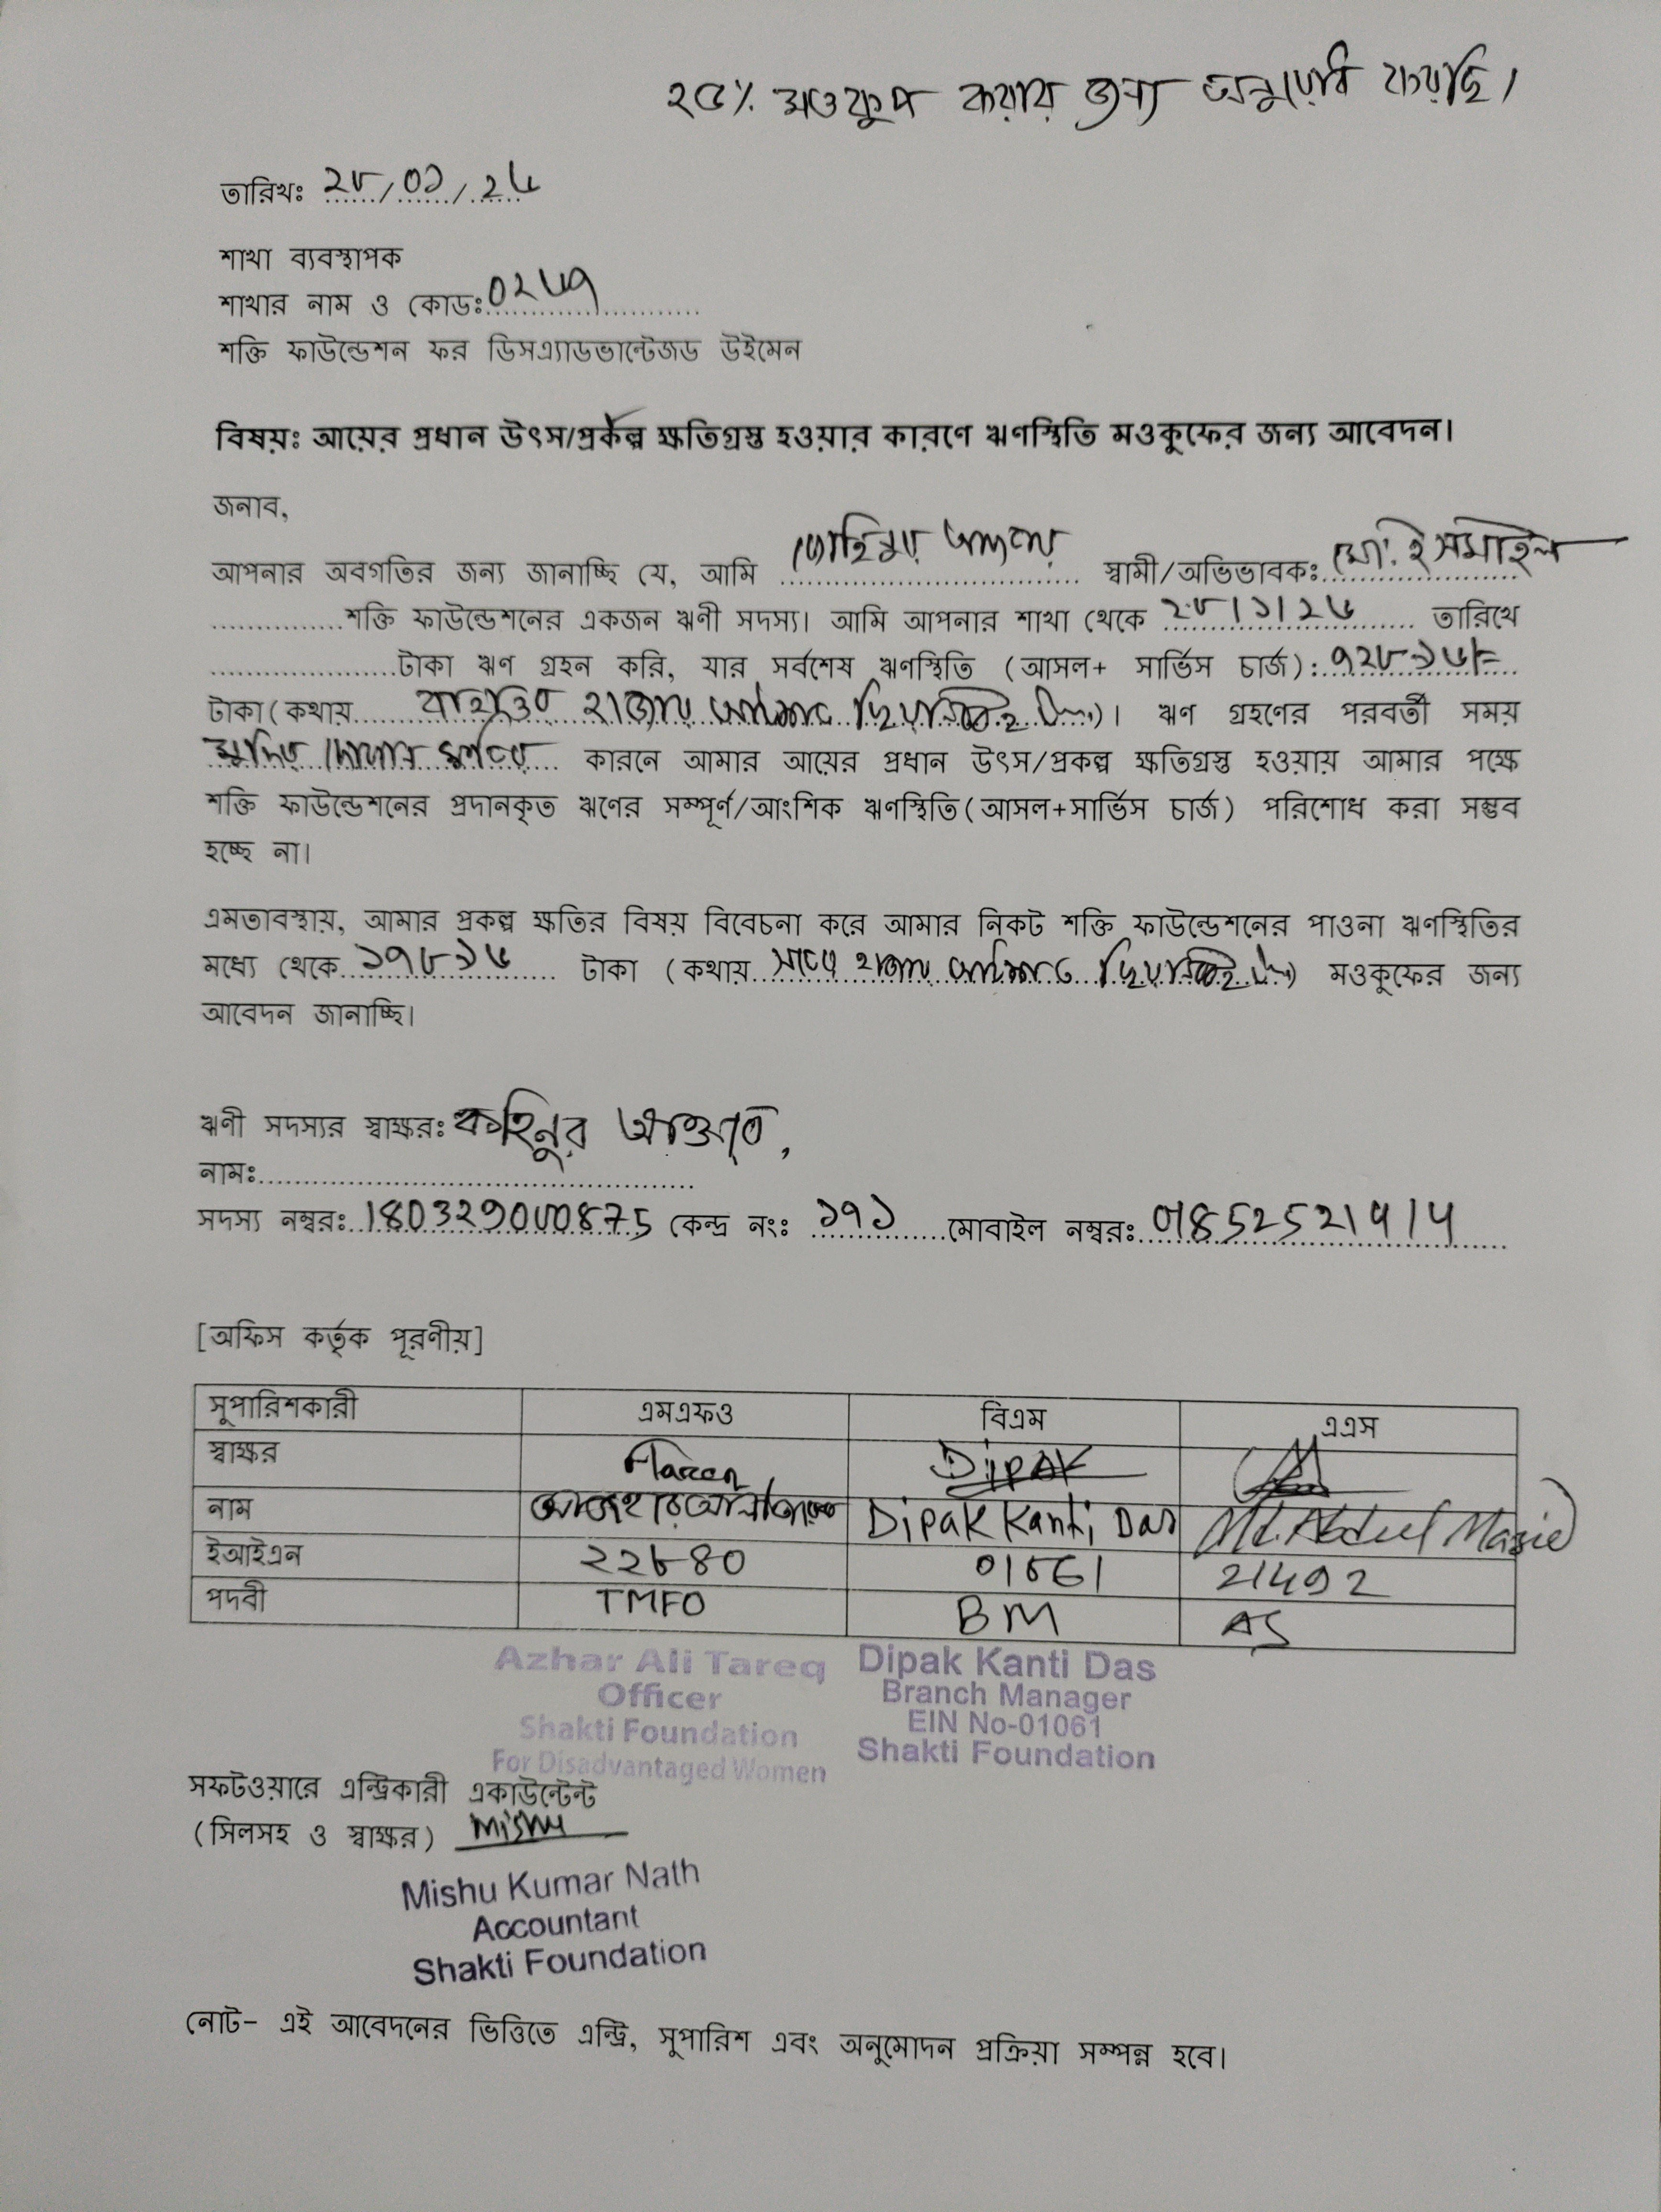 ২৫% মওকুপ করার জন্য অনুরোধ করছি।
তারিখঃ ২৮/০১/২৬
শাখা ব্যবস্থাপক
শাখার নাম ও কোডঃ০২৬৭
শক্তি ফাউন্ডেশন ফর ডিসএ্যাডভান্টেজড উইমেন
বিষয়ঃ আয়ের প্রধান উৎস/প্রকল্প ক্ষতিগ্রস্ত হওয়ার কারণে ঋণস্থিতি মওকুফের জন্য আবেদন।
জনাব,
আপনার অবগতির জন্য জানাচ্ছি যে, আমি কোহিনুর আক্তার স্বামী/অভিভাবকঃ মো: ইসমাইল
শক্তি ফাউন্ডেশনের একজন ঋণী সদস্য। আমি আপনার শাখা থেকে ২৮।১।২৬ তারিখে
টাকা ঋণ গ্রহন করি, যার সর্বশেষ ঋণস্থিতি (আসল+ সার্ভিস চার্জ):৭২৮১৬/=
টাকা(কথায় বাহাত্তর হাজার আটশত)। ঋণ গ্রহণের পরবর্তী সময়
মুদির দোকান কারনে আমার আয়ের প্রধান উৎস/প্রকল্প ক্ষতিগ্রস্ত হওয়ায় আমার পক্ষে
শক্তি ফাউন্ডেশনের প্রদানকৃত ঋণের সম্পূর্ণ/আংশিক ঋণস্থিতি(আসল+সার্ভিস চার্জ) পরিশোধ করা সম্ভব
হচ্ছে না।
এমতাবস্থায়, আমার প্রকল্প ক্ষতির বিষয় বিবেচনা করে আমার নিকট শক্তি ফাউন্ডেশনের পাওনা ঋণস্থিতির
মধ্যে থেকে ১৭৮১৬ টাকা (কথায় সতের হাজার আটশত) মওকুফের জন্য
আবেদন জানাচ্ছি।
ঋণী সদস্যর স্বাক্ষরঃ কহিনুর আক্তার
নামঃ
সদস্য নম্বরঃ কেন্দ্র নংঃ ১৭১ মোবাইল নম্বরঃ
[অফিস কর্তৃক পূরণীয়]
সুপারিশকারী এমএফও বিএম এএস
স্বাক্ষর Dipak
নাম Dipak Kanti Das Md. Abdul
ইআইএন 01061
পদবী TMFO BM AS
Azhar Ali Tareq
Officer
Shakti Foundation
For Disadvantaged Women
Dipak Kanti Das
Branch Manager
EIN No-01061
Shakti Foundation
সফটওয়ারে এন্ট্রিকারী একাউন্টেন্ট
(সিলসহ ও স্বাক্ষর) Mishu
Mishu Kumar Nath
Accountant
Shakti Foundation
নোট- এই আবেদনের ভিত্তিতে এন্ট্রি, সুপারিশ এবং অনুমোদন প্রক্রিয়া সম্পন্ন হবে।